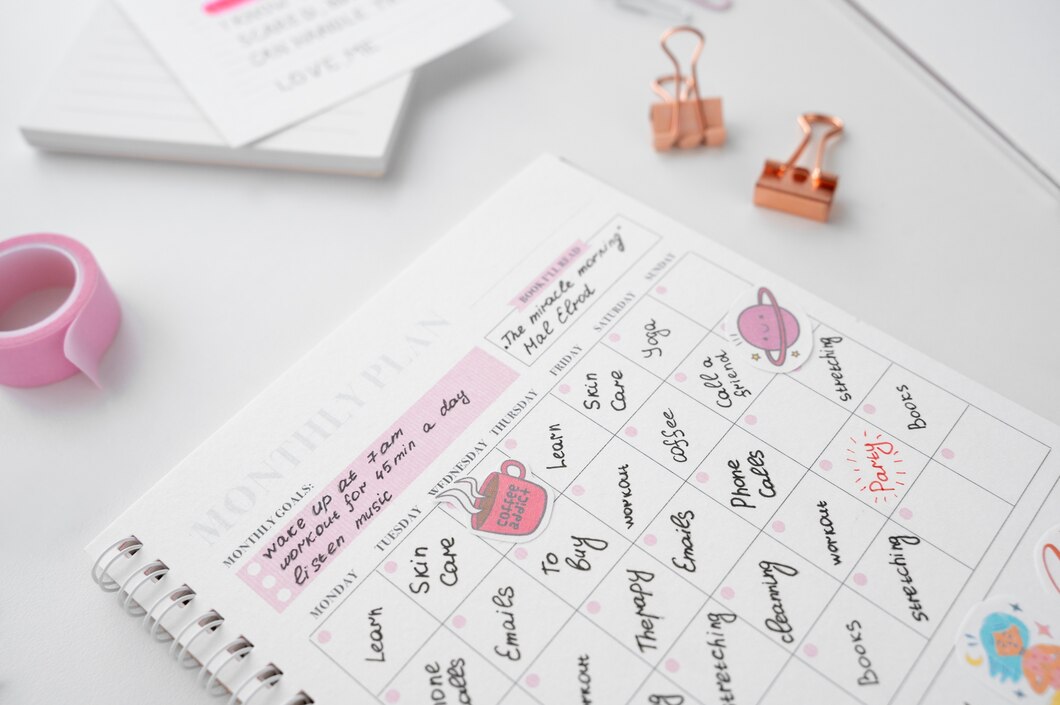 CAN HANDLE
LOVE, ME
MONTHLY PLAN
MONTHLY GOALS:
wake up at 7am
workout for 45 min a day
listen music
BOOK I'LL READ
"The miracle morning"
Mal Elrod
MONDAY TUESDAY WEDNESDAY THURSDAY FRIDAY SATURDAY SUNDAY
Learn
Skin
Care
coffee
addict
Learn
Skin
Care
Yoga
hone
alls
Emails
To
Buy
workout
coffee
Call a
friend
rkout
Therapy
Emails
Phone
Calls
stretching
g
stretching
cleaning
workout
Party
Books
Books
stretching